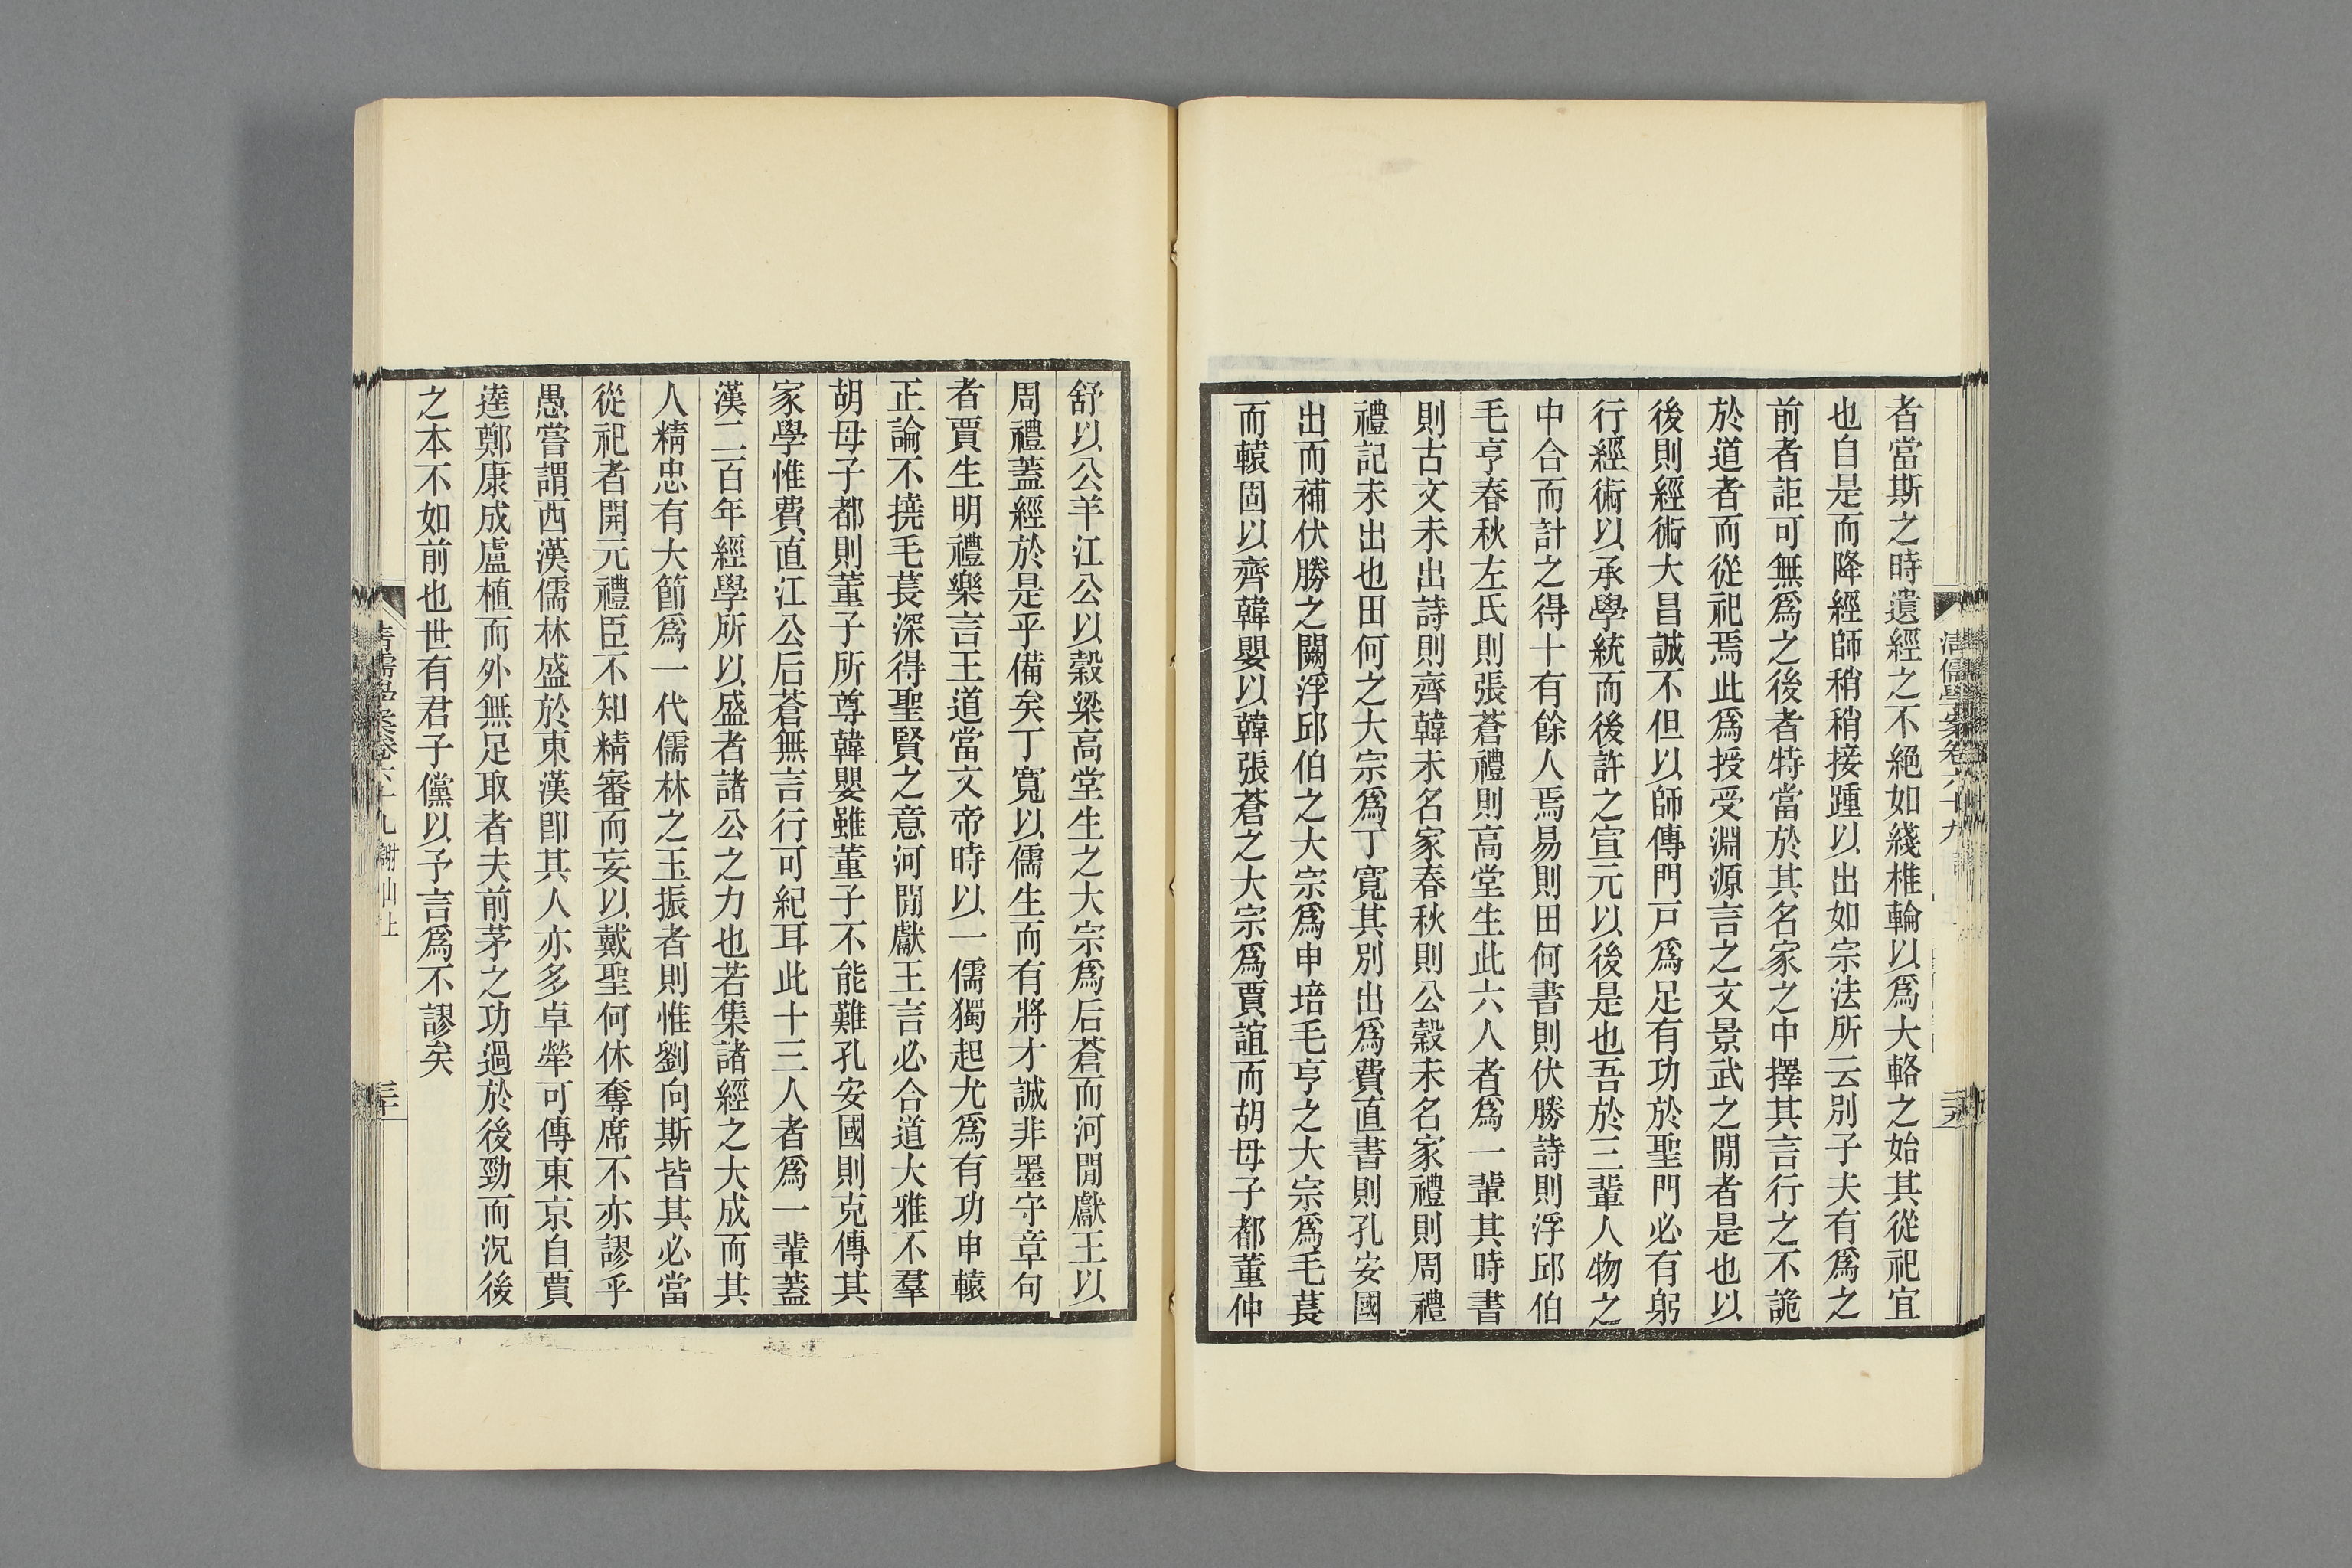 者當斯之時遺經之不絕如綫椎輪以爲大輅之始其從祀宜
也自是而降經師稍稍接踵以出如宗法所云別子夫有爲之
前者詎可無爲之後者特當於其名家之中擇其言行之不詭
於道者而從祀焉此爲授受淵源言之文景武之閒者是也以
後則經術大昌誠不但以師傳門戸爲足有功於聖門必有躬
行經術以承學統而後許之宣元以後是也吾於三輩人物之
中合而計之得十有餘人焉易則田何書則伏勝詩則浮邱伯
毛亨春秋左氏則張蒼禮則高堂生此六人者爲一輩其時書
則古文未出詩則齊韓未名家春秋則公穀未名家禮則周禮
禮記未出也田何之大宗爲丁寬其別出爲費直書則孔安國
出而補伏勝之闕浮邱伯之大宗爲申培毛亨之大宗爲毛萇
而轅固以齊韓嬰以韓張蒼之大宗爲賈誼而胡母子都董仲
舒以公羊江公以穀梁高堂生之大宗爲后蒼而河閒獻王以
周禮蓋經於是乎備矣丁寬以儒生而有將才誠非墨守章句
者賈生明禮樂言王道當文帝時以一儒獨起尤爲有功申轅
正論不撓毛萇深得聖賢之意河閒獻王言必合道大雅不羣
胡母子都則董子所尊韓嬰雖董子不能難孔安國則克傳其
家學惟費直江公后蒼無言行可紀耳此十三人者爲一輩蓋
漢二百年經學所以盛者諸公之力也若集諸經之大成而其
人精忠有大節爲一代儒林之玉振者則惟劉向斯皆其必當
從祀者開元禮臣不知精審而妄以戴聖何休奪席不亦謬乎
愚嘗謂西漢儒林盛於東漢卽其人亦多卓犖可傳東京自賈
逵鄭康成盧植而外無足取者夫前茅之功過於後勁而況後
之本不如前也世有君子儻以予言爲不謬矣
清儒學案卷六十九
清儒學案卷六十九 謝山上